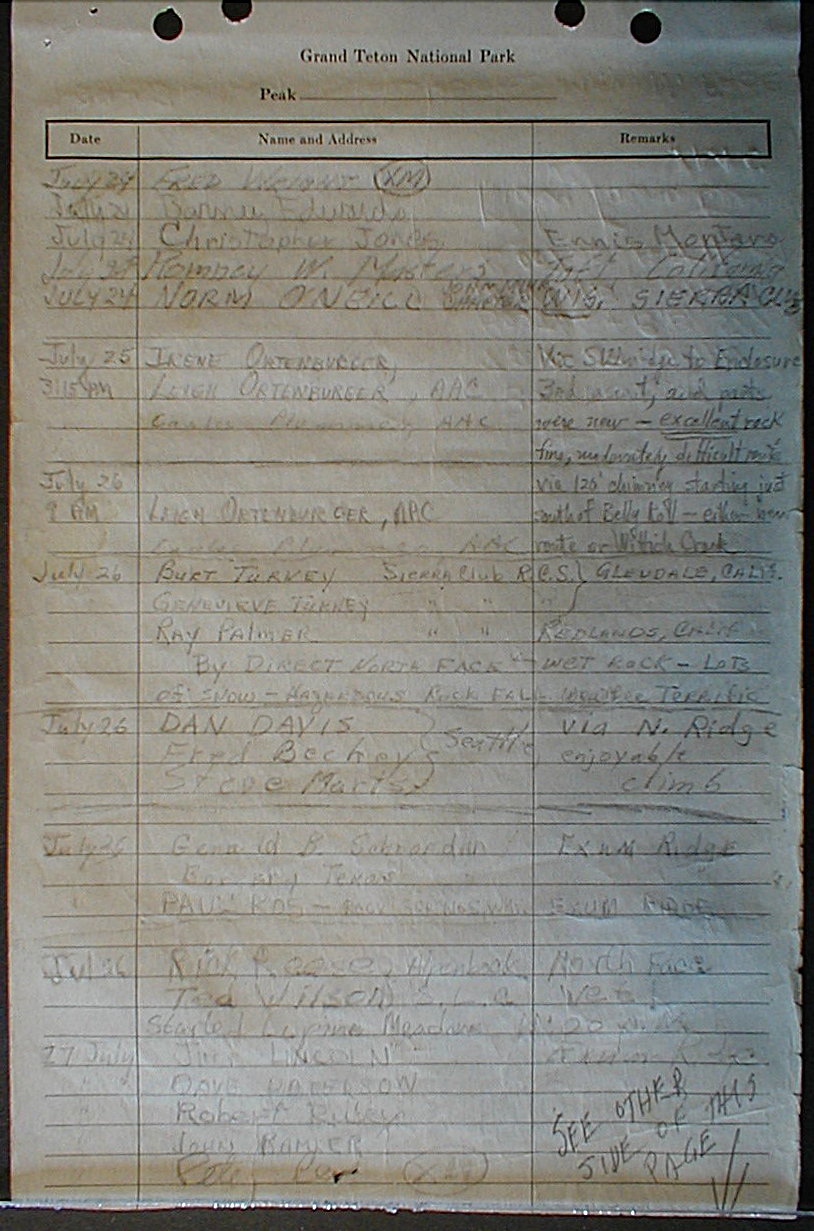 Grand Teton National Park
Peak
Date Name and Address Remarks
July 24 FRED WRIGHT (XM)
July 24 Edwards
July 24 Christopher Jones Ennis Montana
July 24 Romney W. Masters Taft California
JULY 24 NORM O'NEILL JOHN MUIR CHAPTER WIS. SIERRA CLUB
July 25 IRENE ORTENBURGER, Via SW ridge to Enclosure
3:15 PM LEIGH ORTENBURGER, AAC 3rd ascent, and parts
AAC were new - excellent rock
fine, moderately difficult route
July 26 via 120' chimney starting just
9 AM LEIGH ORTENBURGER, AAC south of Belly Roll - either new
AAC route or Wittich Crack
July 26 BURT TURNEY SIERRA CLUB R.C.S. } GLENDALE, CALIF.
GENEVIEVE TURNEY " " "
RAY PALMER " " REDLANDS, CALIF
BY DIRECT NORTH FACE - WET ROCK - LOTS
OF SNOW - HAZARDOUS ROCK FALL TERRIFIC
July 26 DAN DAVIS via N. Ridge
Fred Beckey } Seattle enjoyable
Steve Marts climb
July 25 Gerald B. Exum Ridge
Texas "
" PAUL EXUM RIDGE
Jul 26 Rick Reese, Alpenbock North Face
Ted Wilson S.L.C. Wet!
Started Lupine Meadows
27 July JIM LINCOLN Exum Ridge
" DAVE
" Robert
" JOHN
" Pete
SEE OTHER
SIDE OF THIS
PAGE